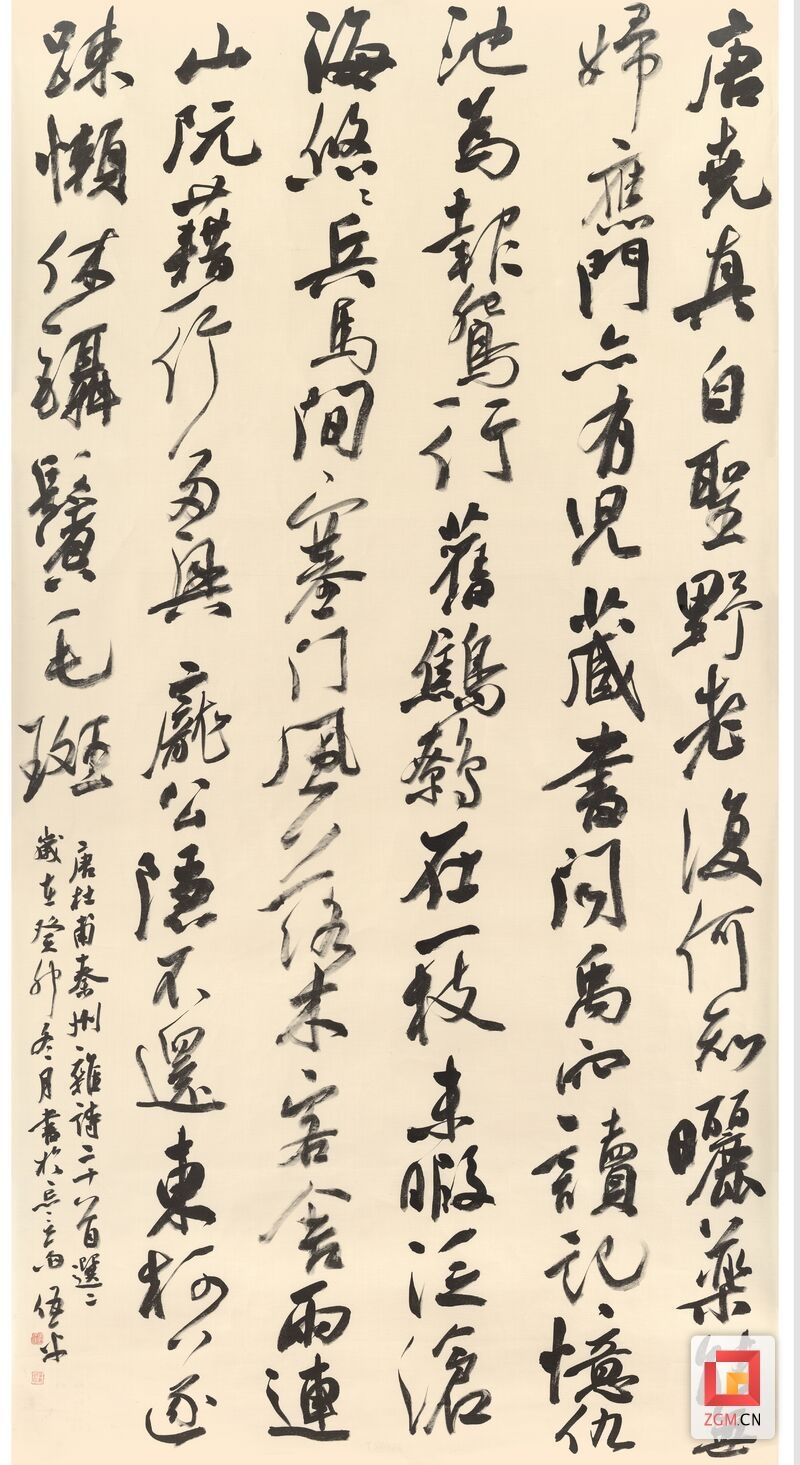 唐堯真自聖野老復何知曬藥能無
婦應門亦有児藏書聞禹穴讀記憶仇
池為報鴛行舊鷦鷯在一枝未暇泛滄
海悠々兵馬間塞门風落木客舍雨連
山阮藉行多興龐公隱不還東柯遂
踈懶休鑷鬢毛斑
唐杜甫秦州雜詩二十首選二
歲在癸卯冬月書於
ZGM.CN